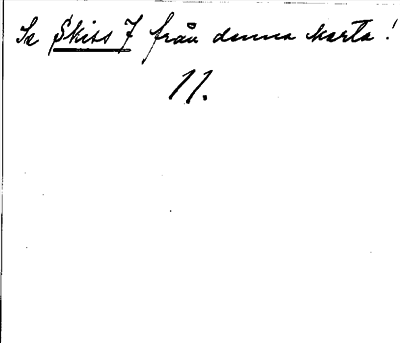 Se Skiss 7 från denna karta!
11.